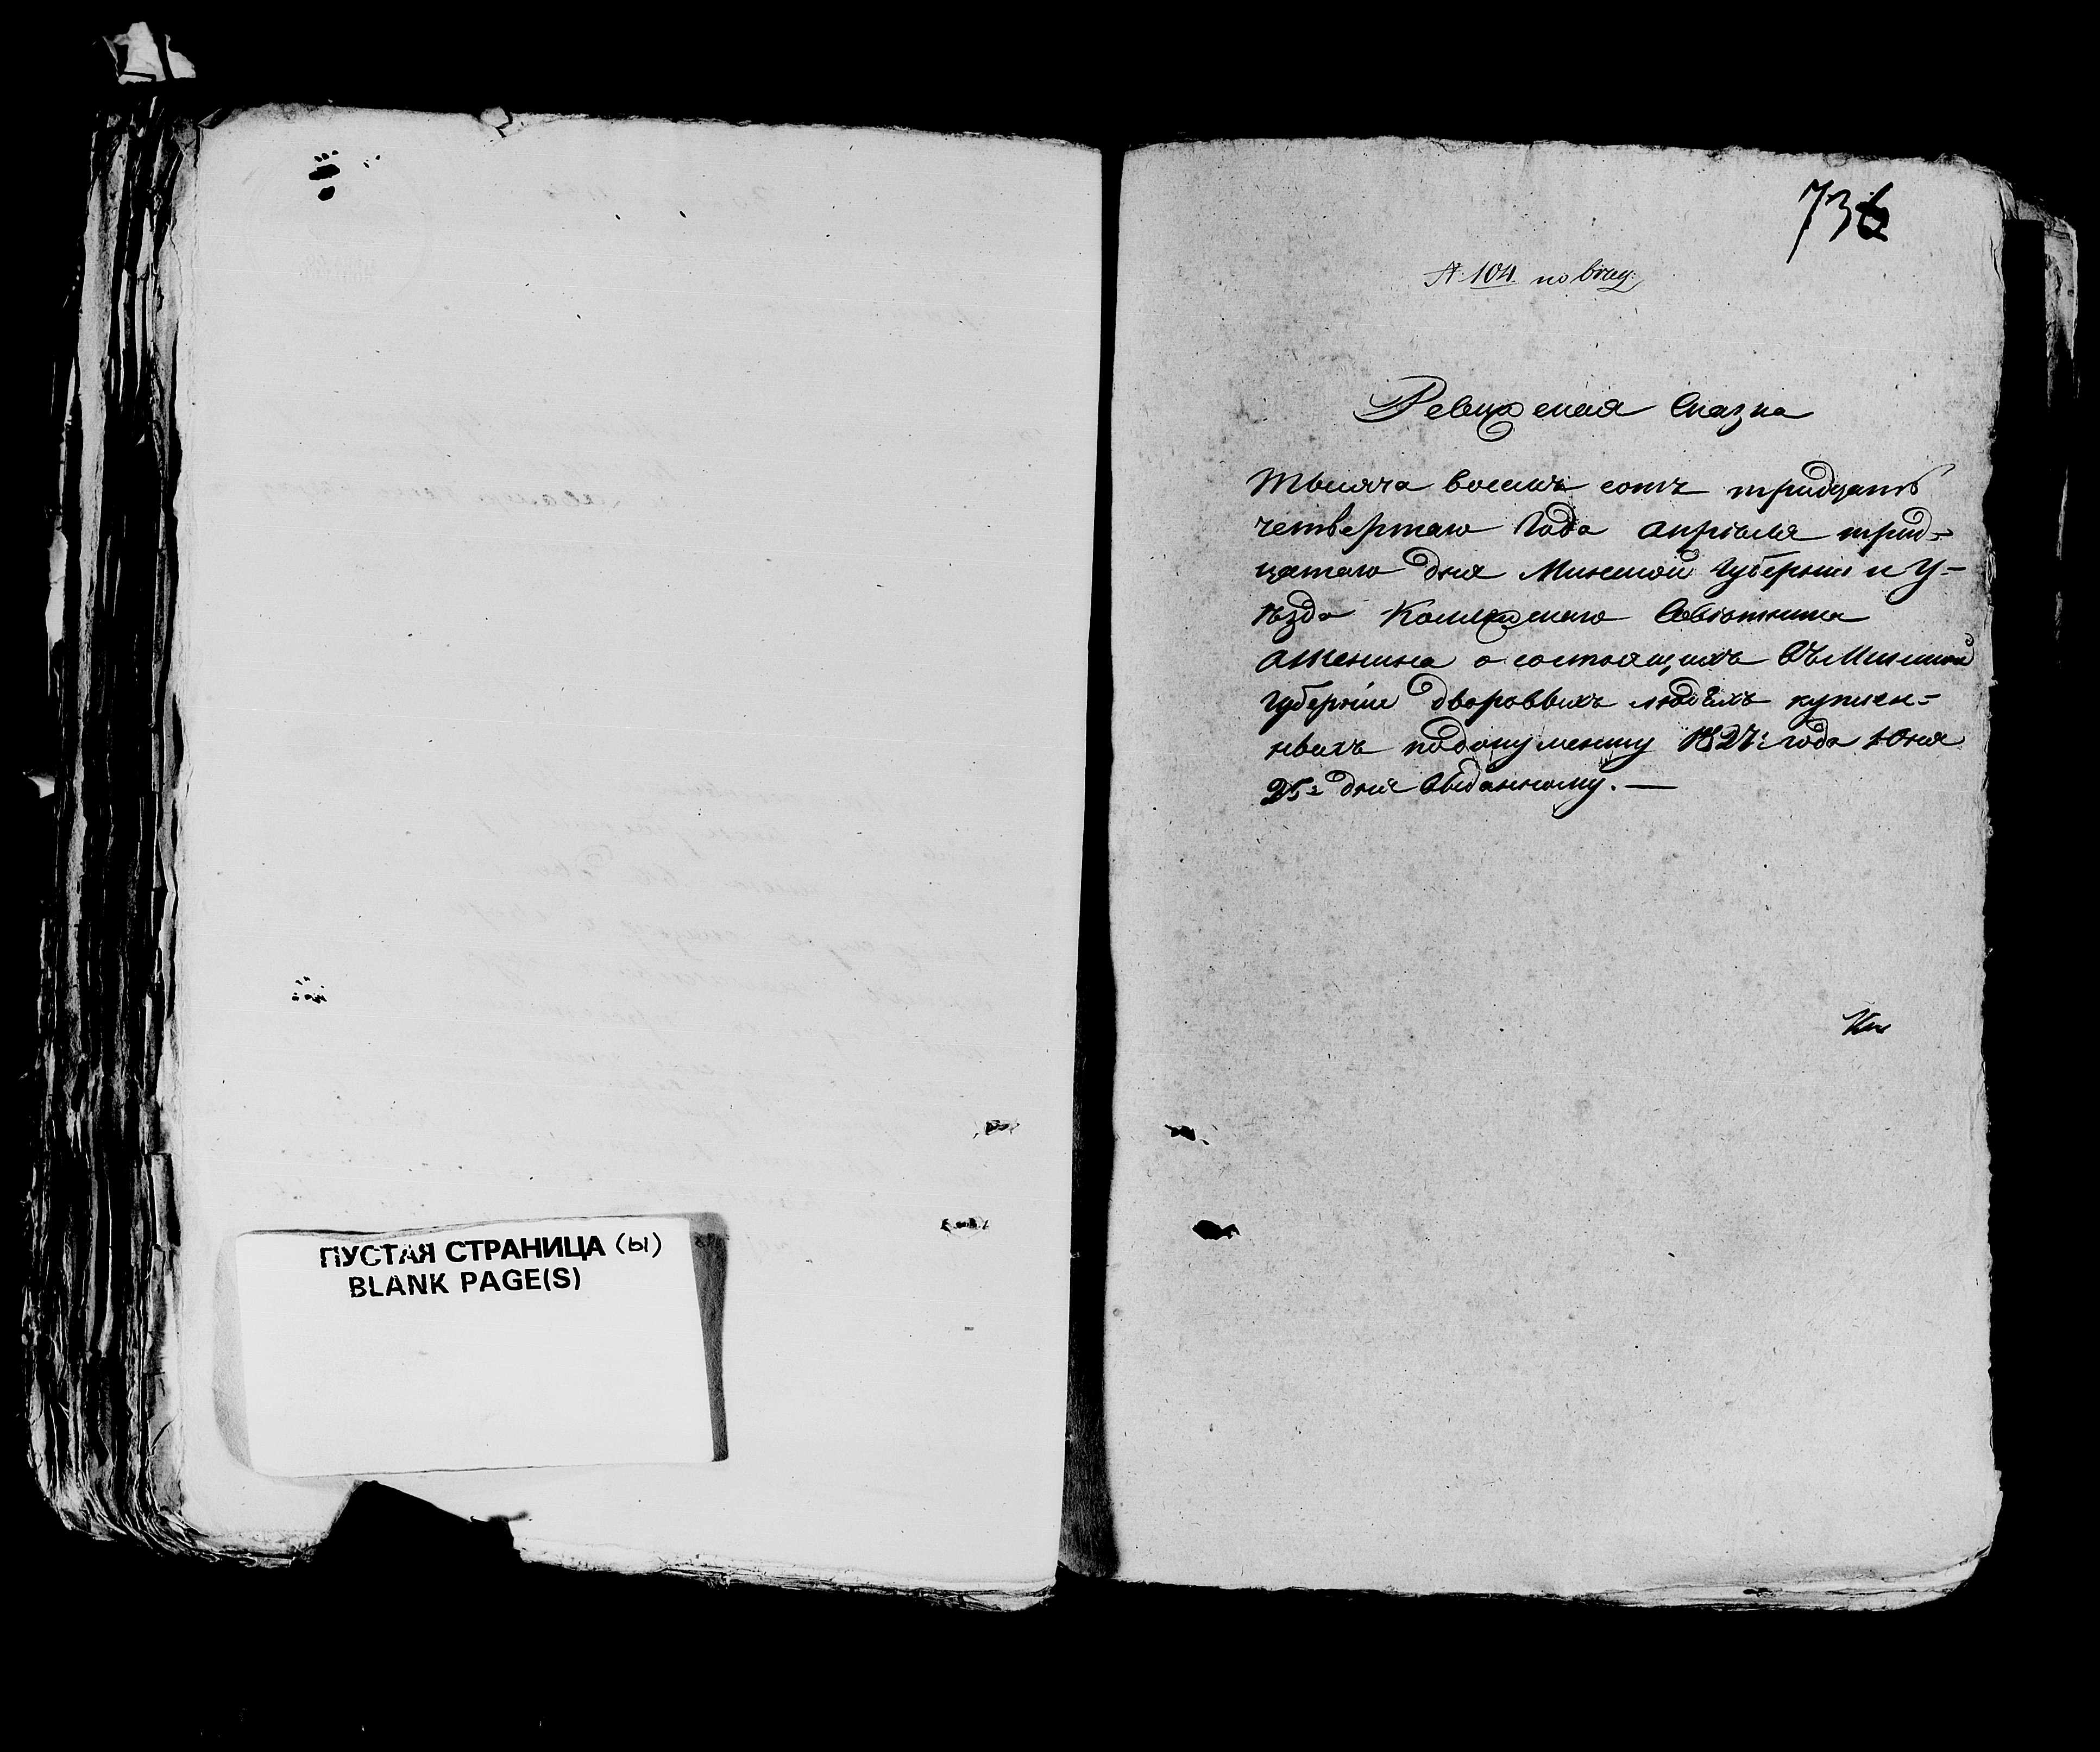 ПУСТАЯ СТРАНИЦА (ы)
BLANK PAGE(S)
736
№ 104 по
Ревижская Сказка
Тысяча восемь сотъ тридцать
четвертаго Года апрѣля трид-
цатаго дня Минской Губерніи и У-
ѣзда Коллежскаго Совѣтника
о состоящихъ въ Минской
Губерніи дворовыхъ людѣхъ куплен-
ныхъ подокументу 1827: года Юня
25: дня выданному. —